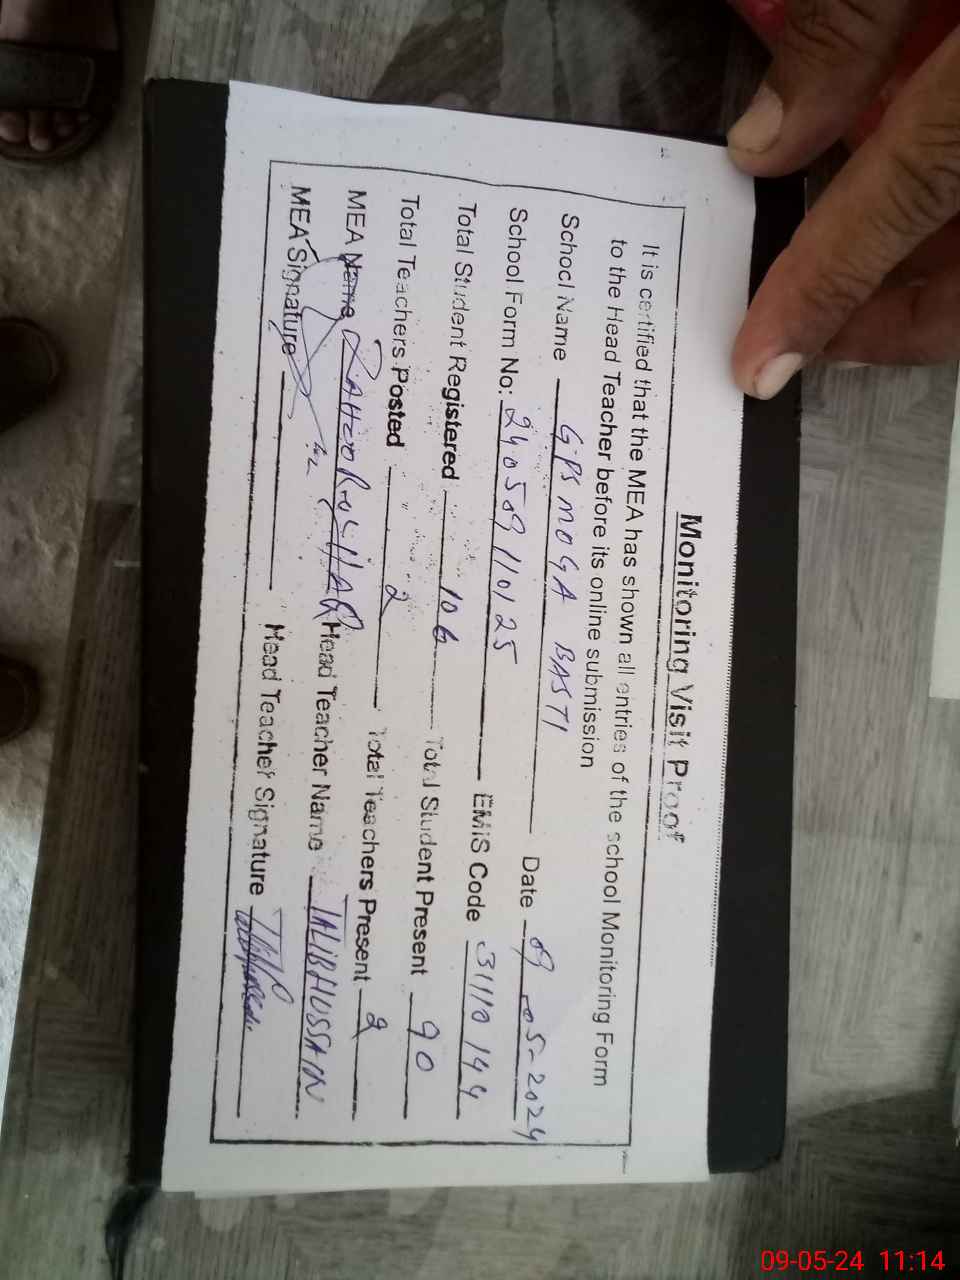 Monitoring Visit Proof
It is certified that the MEA has shown all entries of the school Monitoring Form
to the Head Teacher before its online submission
School Name GPS MOGA BASTI Date 09-05-2024
School Form No: 240509110125 EMIS Code 31110144
Total Student Registered 106 Total Student Present 90
Total Teachers Posted 2 Total Teachers Present 2
MEA Name Head Teacher Name TALIB HUSSAIN
MEA Signature Head Teacher Signature
09-05-24 11:14